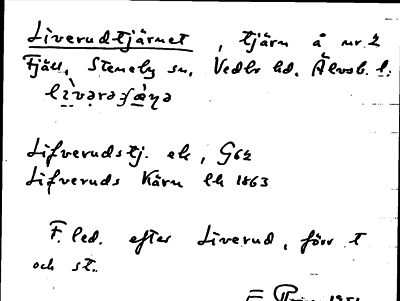 Liverudtjärnet, tjärn å nr 2
Fjäll, Steneby sn, Vedbo hd. Älvsb. l.
Lifverudstj. ek, G62
Lifveruds Kärn lk 1863
F. led. efter Liverud, förr t
och st.